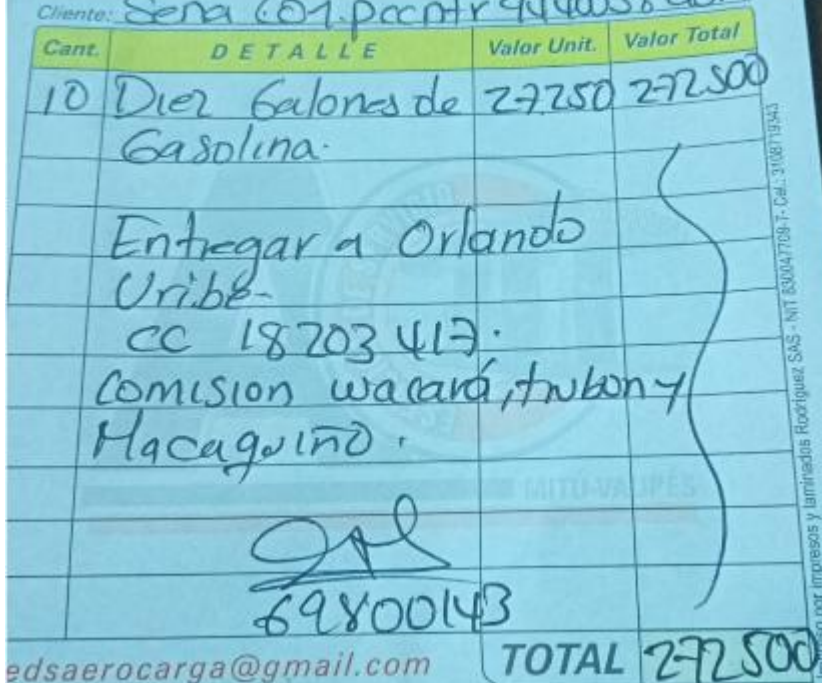 Cliente: Sena
Cant. DETALLE Valor Unit. Valor Total
10 Diez Galones de 27.250 272.500
Gasolina.
Entregar a Orlando
Uribe-
CC 18203417.
Comision wacará, trubon y
Macaquiño.
69800143
MITÚ-VAUPÉS
edsaerocarga@gmail.com TOTAL 272.500
por impresos y laminados Rodríguez SAS - NIT 830047709-7- Cel.: 3108719343